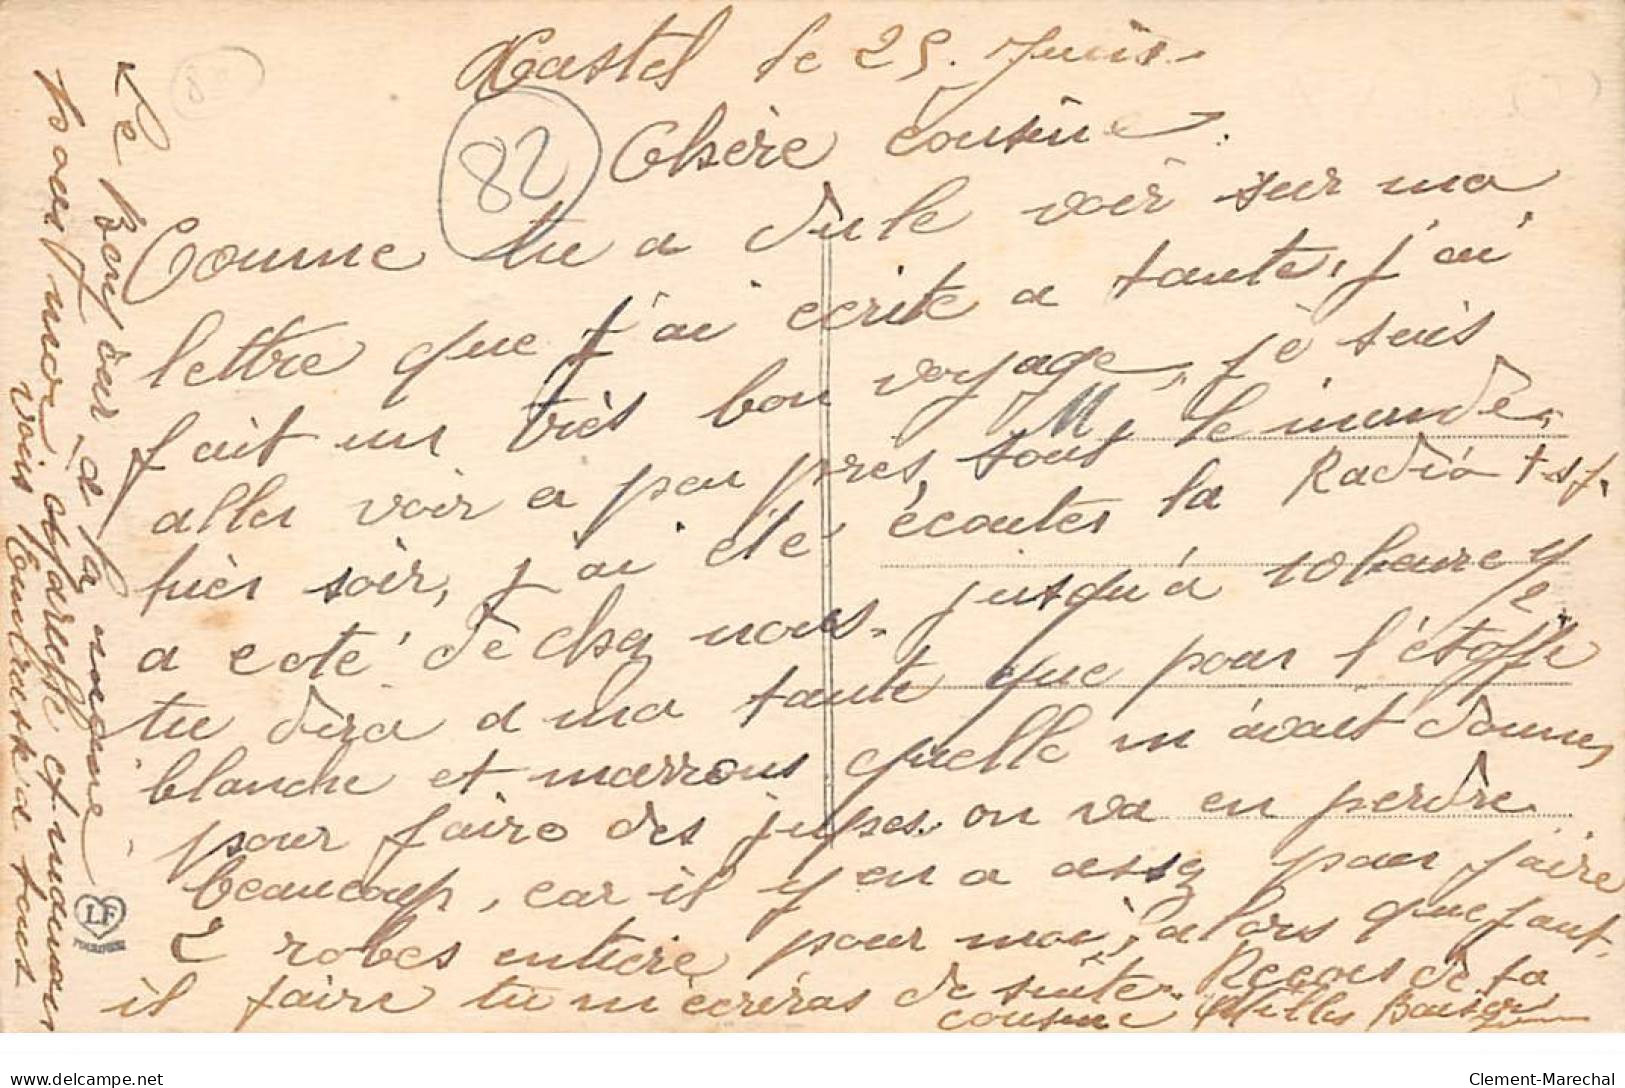 Castel le 25 Juin.
82
Chère cousine.
Comme tu a du le voir sur ma
lettre que j'ai écrite a tante, j'ai
fait un très bon voyage, je suis
aller voir a peu près, tout M, le monde,
hier soir, j'ai été écouter la Radio t.s.f.
a coté de chez nous. jusqu'a 10 heure 1/2
tu dira a ma tante que pour l'étoffe
blanche et marrons quelle m'avait donner
pour faire des jupes. on va en perdre
beaucoup, car il y en a assez pour faire
2 robes entière pour moi, alors que faut-
il faire tu m'écriras de suite. Recois de ta
cousine Milles Baiser
Le Bonjour a la
voir tout
LF
delcampe.net
Clement-Marechal